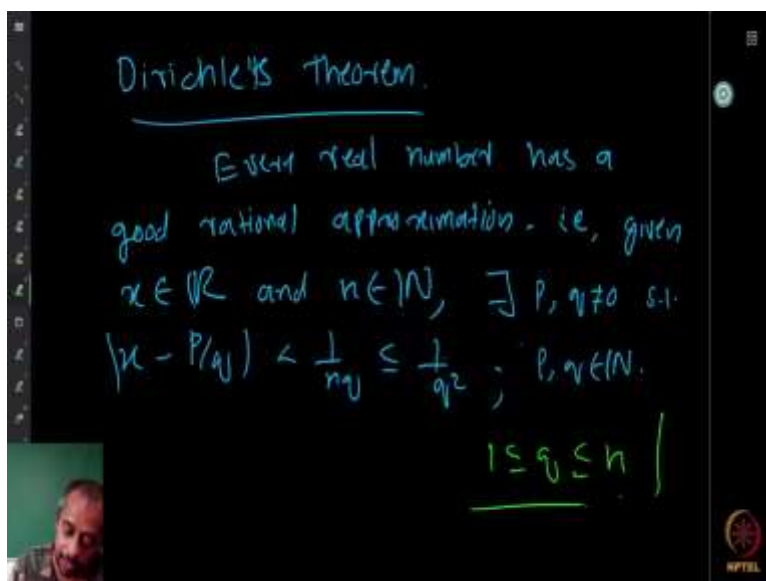 Dirichlet's Theorem.
Every real number has a
good rational approximation. ie, given
x ∈ ℝ and n ∈ ℕ, ∃ p, q≠0 s.t.
|x - p/q| < 1/nq ≤ 1/q² ; p, q ∈ ℕ.
1 ≤ q ≤ n
NPTEL